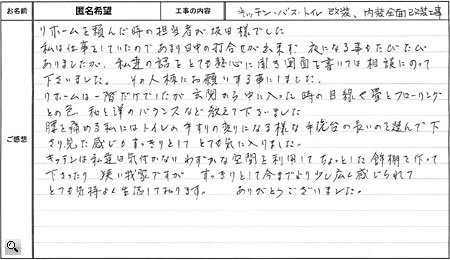 お名前 匿名希望 工事の内容 キッチン・バス・トイレ改装、内装全面改装工事
ご感想
リホームを頼んだ時の担当者が坂田様でした
私は仕事をしていたのであまり日中の打合せが出来ず 夜になる事もたびたび
ありましたが、私達の話をとても熱心に聞き図面を書いては相談にのって
下さいました。 その人柄にお願いする事にしました。
リホームは一階だけでしたが玄関から中に入った時の目線や畳とフローリング
との色 和と洋のバランスなど教えて下さいました
腰を痛める私にはトイレの手すりの変りになる様な手洗台の長いのを選んで下
さり見た感じもすっきりしてとても気に入りました。
キッチンは私達は気付かないわずかな空間を利用してちょっとした飾棚を作って
下さったり 狭い我家ですが すっきりとして今までより少し広く感じられて
とても気持よく生活しております。 ありがとうございました。